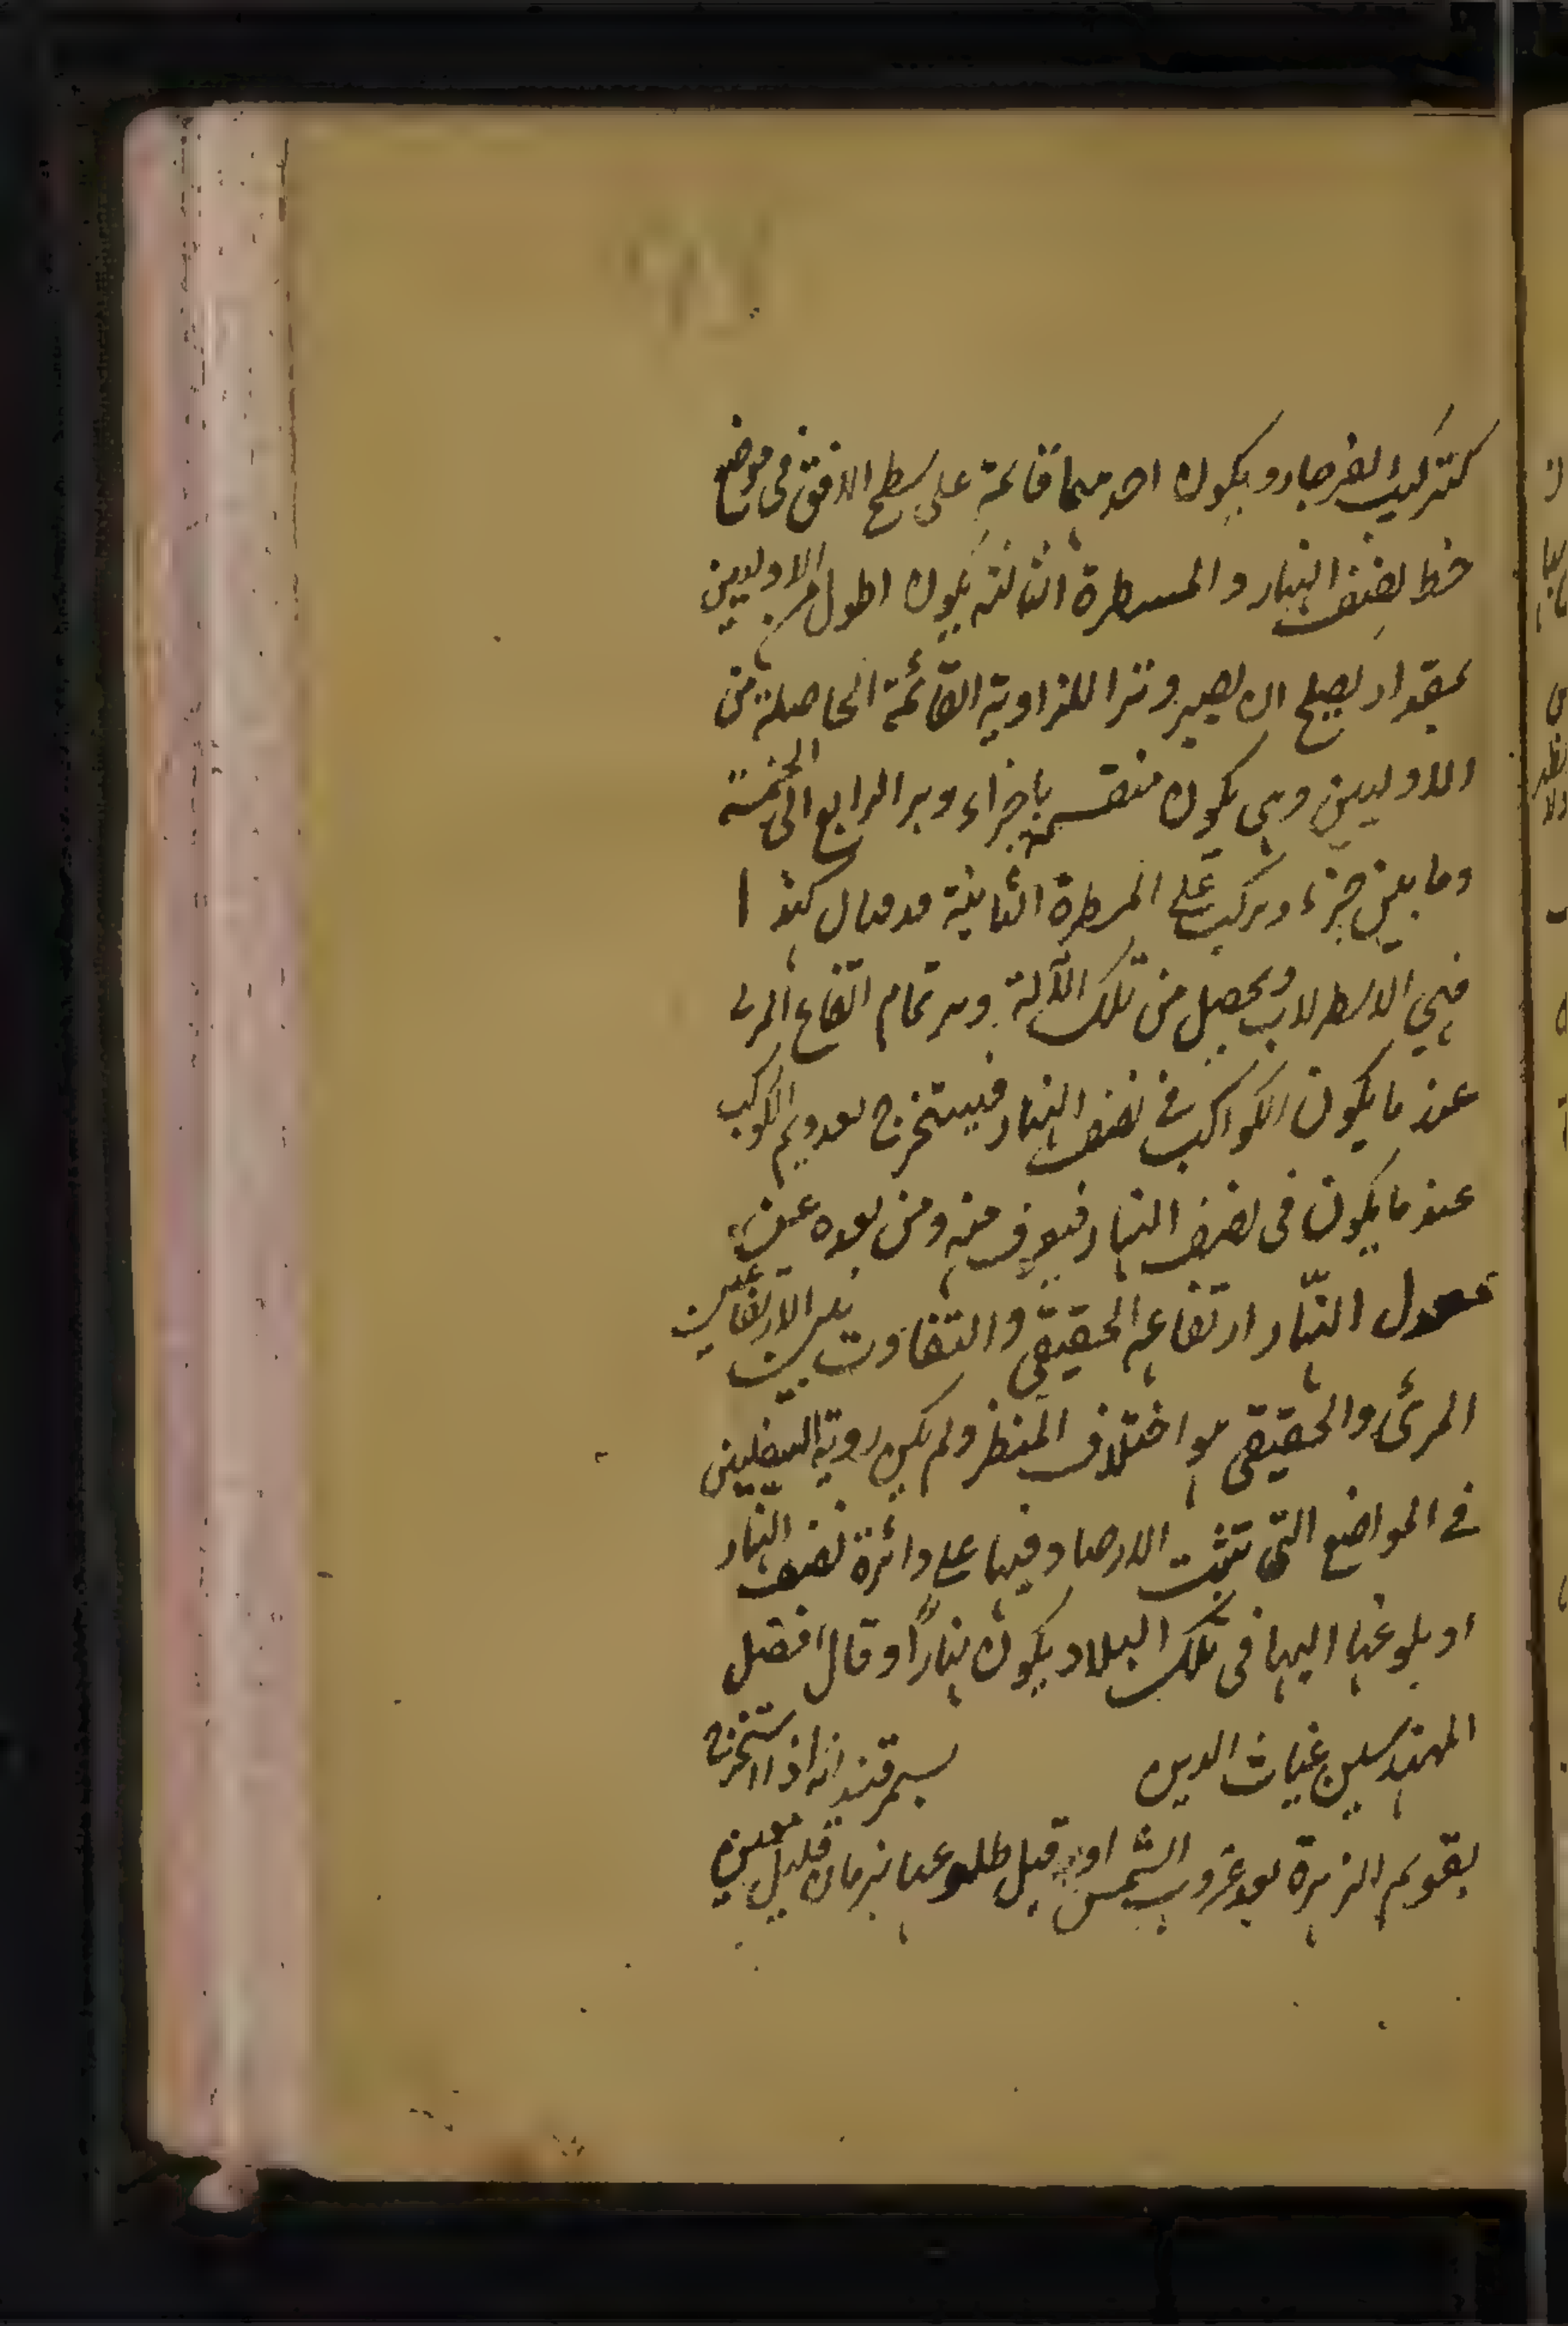 كتركيب الفرجار ويكون احديهما قائمة على سطح الافق فى موضع
خط نصف النهار والمسطرة الثالثة يكون اطول من الاوليين
بمقدار يصلح ان يصير وترا للزاوية القائمة الحاصلة من
الاوليين وهى يكون منقسمة باجزاء وتر الرابع الى الخمسة
وما بين جزء ويركب على المسطرة الثانية
فهي الاسطرلاب ويحصل من تلك الآلة وتر تمام ارتفاع المرئى
عند ما يكون الكواكب فى نصف النهار فيستخرج تقويم الكوكب
عند ما يكون فى نصف النهار فيعرف منه ومن بعده عن
معدل النهار ارتفاعه الحقيقى والتفاوت بين الارتفاعين
المرئى والحقيقى هو اختلاف المنظر ولم يكن روية السفليين
فى المواضع التى تثبت الارصاد فيها على دائرة نصف النهار
او بلوغها اليها فى تلك البلاد يكون نهاراً وقال افضل
المهندسين غياث الدين بسمرقند انه اذا استخرج
تقويم الزهرة بعد غروب الشمس او قبل طلوعها بزمان قليل معين